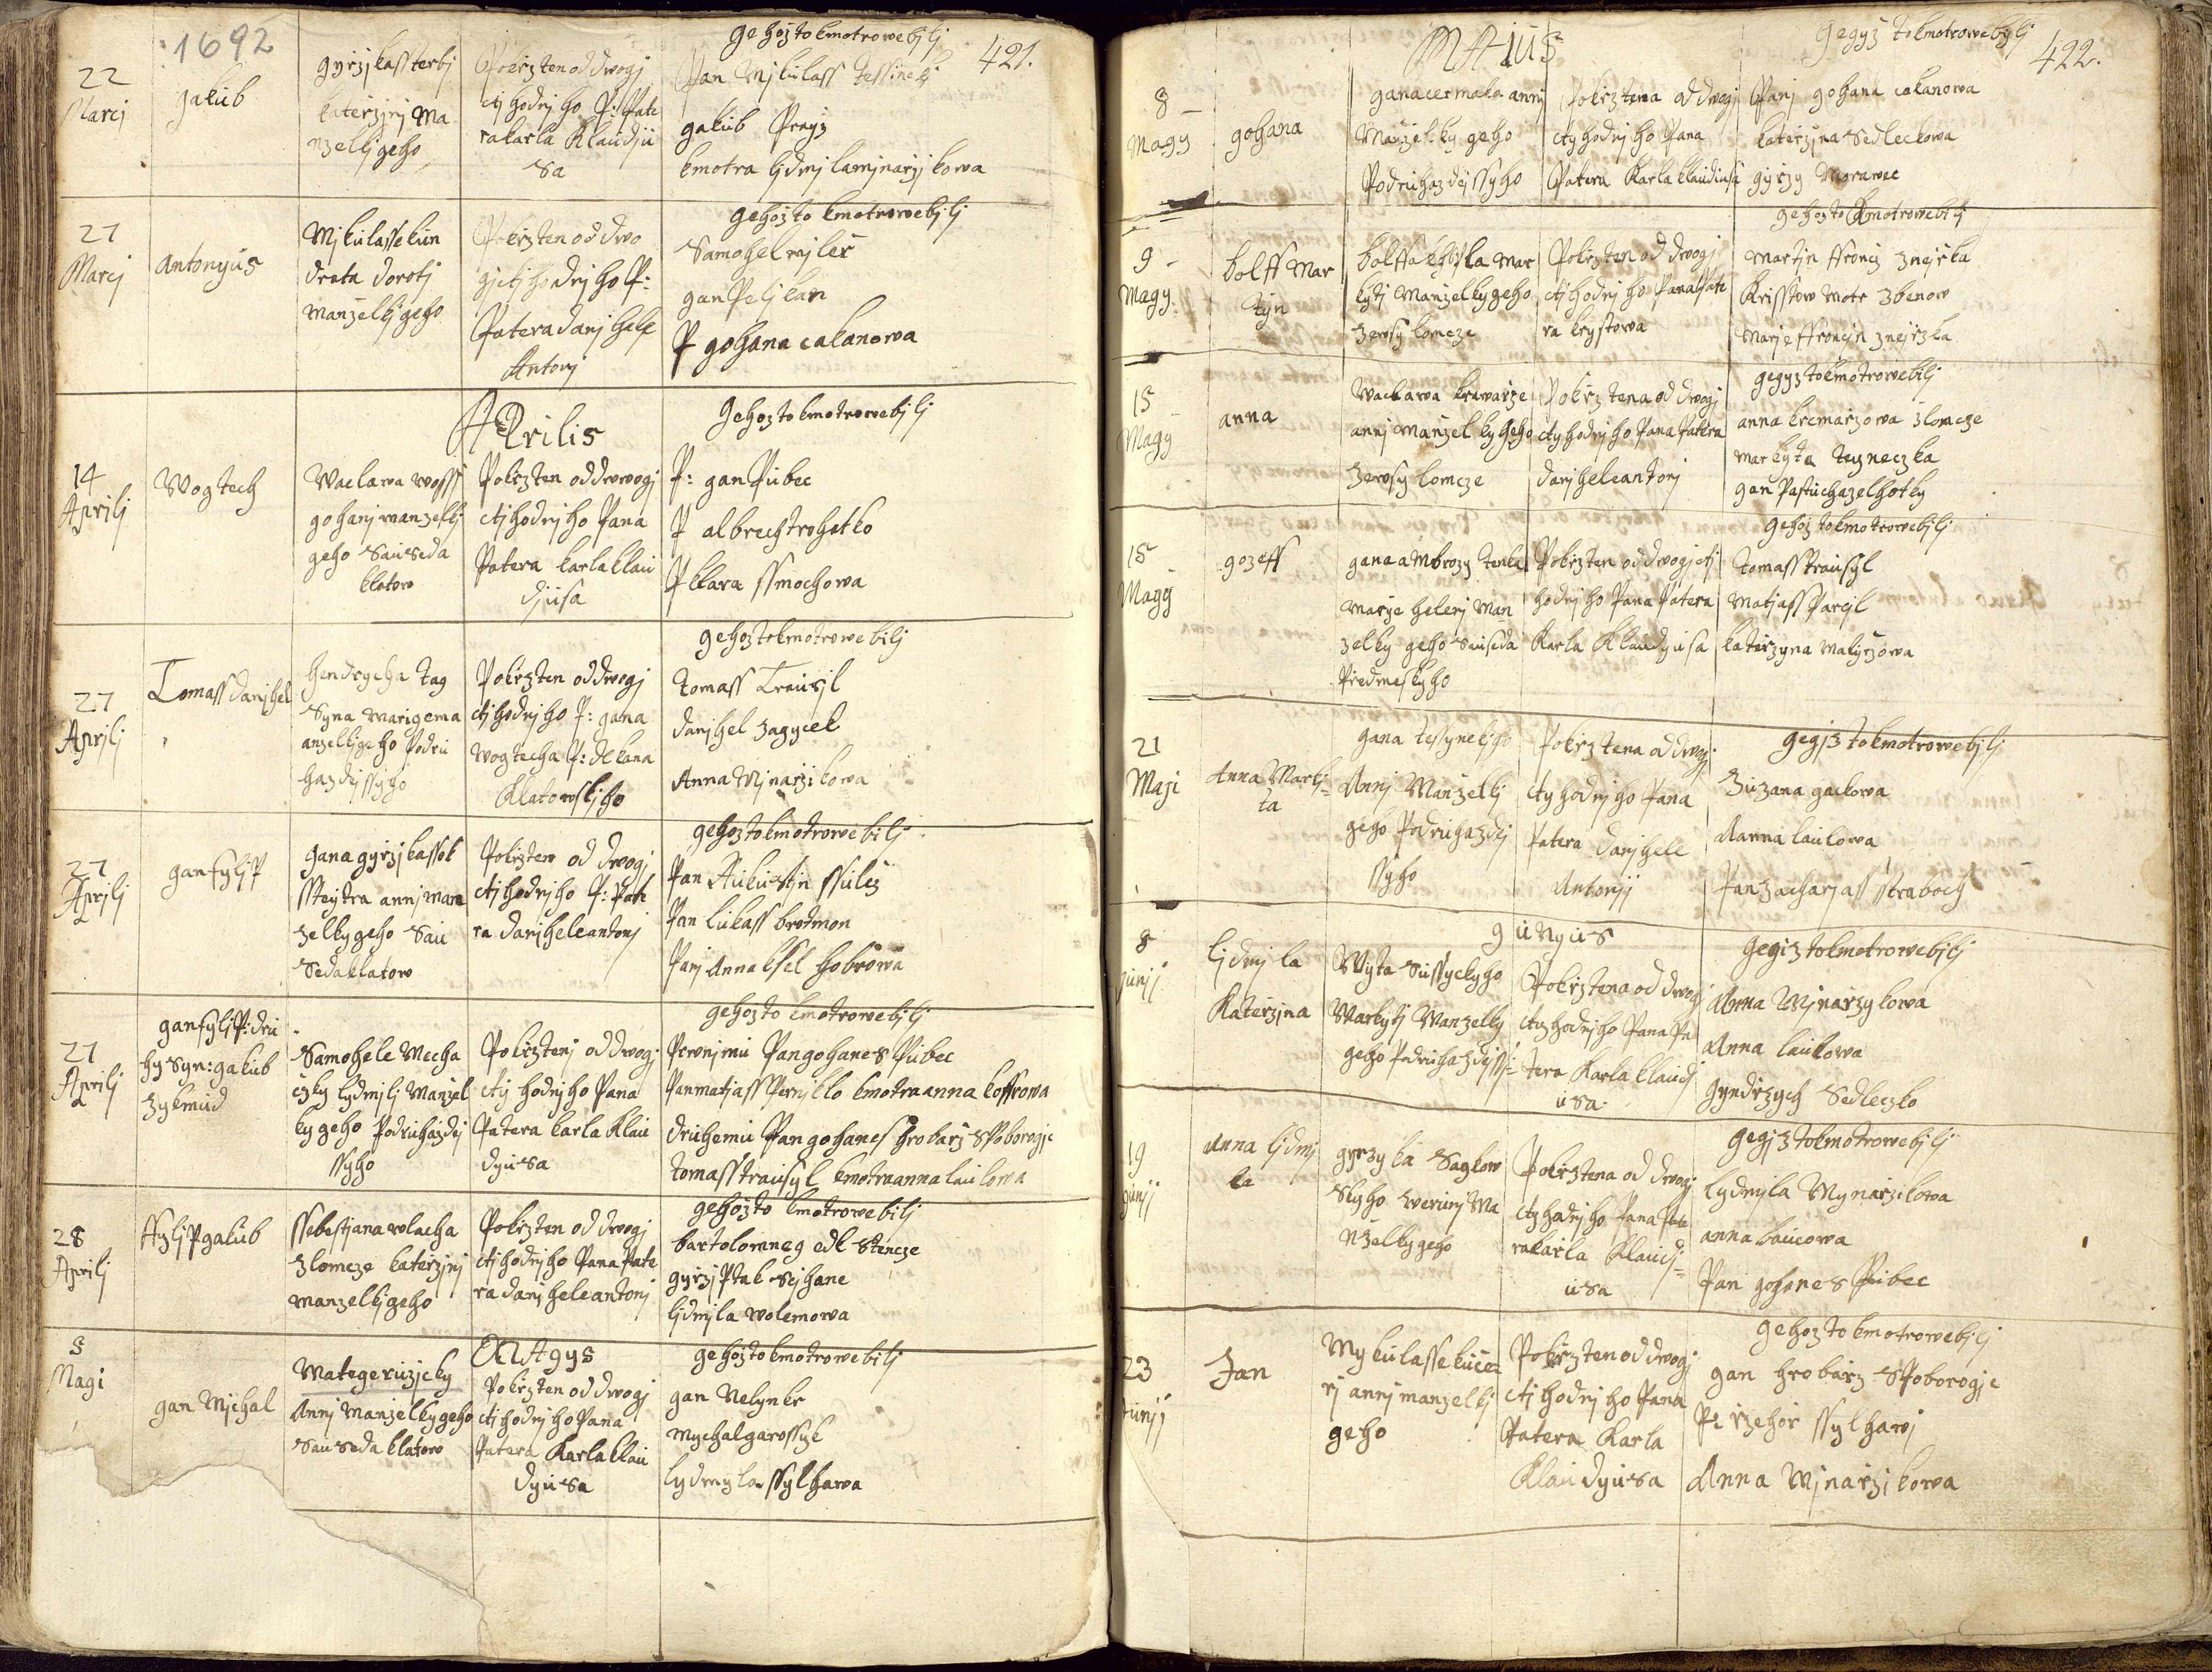 1692
421.
gehoz to kmotrowe bjlj
22
Marcj
gakub
gyrzjka sterbj
katerzjnj Ma
nzelkj geho
Pokrzten od dwogj
ctj hodnj ho P: Pate
ra karla Klaudju
sa
Pan Mjkulass Tessinckj
gakub Prayz
kmotra ljdmjla mjnarzjkowa
27
Marcj
Antonyus
Mjkulasse kun
drata dorotj
manzelkj geho
Pokrzten od dwo
gj ctj hodnj ho P:
Patera danj hele
Antonj
gehoz to kmotrowe bjlj
Samohel
gan Peljkan
P gohana cakanowa
APrilis
14
Aprilj
Wogtech
Waclawa
gohanj manzelkj
geho Sauseda
klatow
Pokrzten od dwogj
ctj hodnj ho Pana
Patera karla klau
djusa
gehoz to kmotrowe bjlj
P: gan Pubec
P albrecht rohatko
P klara ssmochowa
27
Aprilj
Tomass danjhel
hendrycha tag
Syna marige ma
anzelkj geho Podru
hazdjssyho
Pokrzten od dwogj
ctj hodnj ho P: gana
wogtecha P: dekana
Klatowskjho
gehoz to kmotrowe bilj
Tomass Trausjl
danjhel zagycek
Anna Mjnarzikowa
27
Aprilj
gan fyljp
gana gyrzjka ssok
ssteytra annj man
zelky geho Sau
Seda klatow
Pokrzten od dwogj
ctj hodnj ho P: Pate
ra danjhele antonj
gehoz to kmotrowe bilj
Pan Aukustjn ssulcz
Pan lukass brotmon
Panj Anna
27
Aprilj
gan fyljp: dru
hy Syn: gakub
zykmud
Samohele Mecha
czky lydmjlj Manzel
ky geho Podruhazdej
ssyho
Pokrztenj od dwogj
ctj hodnj ho Pana
Patera karla Klau
dyusa
gehoz to kmotrowe bjlj
Prwnjmu Pan gohanes Pubec
Pan matjass Pernjklo kmotra anna koffrowa
druhemu Pan gohanes hrobarz s Poborogje
tomass trausyl kmotra anna laukowa
28
Aprilj
ffyljp gakub
ssebestjana wlacha
z lomcze katerzjnj
manzelkj geho
Pokrzten od dwogj
ctj hodnj ho Pana Pate
ra danjhele antonj
gehoz to kmotrowe bilj
bartolomneg edl Stencze
gyrzj Ptak
ljdmjla wolemowa
MAgys
3
Magi
gan Mjchal
Mategeruzjcky
Annj Manzelky geho
Sauseda klatow
Pokrzten od dwogj
ctj hodnj ho Pana
Patera Karla klau
dyusa
gehoz to kmotrowe bilj
gan Nelynkr
mychal garossyk
lydmyla ssylhawa
MAius
422.
gegyz to kmotrowe bylj
8
Magy
gohana
gana cermaka annj
Manzelky geho
Podruhazdejssyho
Pokrztena od dwogj
cty hodnj ho Pana
Patera Karla klaudiusa
Panj gohana cakanowa
katerzjna Sedleckowa
gyrzy Morawec
9
Magy
bolff Mar
tyn
bolffa Mar
kytj Manzelky geho
ze wsy lomcze
Pokrzten od dwogj
ctj hodnj ho Pana Pate
ra krystowa
gehoz to Kmotrowe bilj
martjn ffroncz
Krisstow Motr
Marje
15
Magy
anna
Waclawa
annj manzelky geho
ze wsy lomcze
Pokrztena od dwogj
cty hodnj ho Pana Patera
danjhele antonj
gegyz to kmotrowe bilj
anna krcmarzowa z lomcze
markyta
gan Pastucha ze lhotky
15
Magy
gozeff
gana ambrozy
marje helenj man
zelky geho Sauseda
Predmeskyho
Pokrzten od dwogj ctj
hodnj ho Pana Patera
Karla Klaudyusa
gehoz to kmotrowe bjlj
Tomass trausyl
Matjass Parcjl
katerzyna malyrzowa
21
Maji
Anna Markj=
ta
gana tessyneckjho
Annj Manzelkj
geho Podruhazdej
ssyho
Pokrztena od dwogj
cty hodnj ho Pana
Patera danjhele
Antonjj
gegjz to kmotrowe bjlj
Zuzana gackowa
Aanna laukowa
Pan zacharjass straboch
gunyus
8
Junjj
ljdmjla
Katerzjna
Wyta Sussyckyho
Markytj Manzelky
geho Podruhazdejssj=
Pokrztena od dwogj
cty hodnj ho Pana Pa
tera Karla klaudj
usa
gegiz to kmotrowe bjlj
Anna Mjnarzykowa
Anna laukowa
gyndrzych Sedleczko
19
Junjj
Anna ljdmj
la
gyrzyka Saglow
Skyho werunj Ma
nzelky geho
Pokrztena od dwogj
cty hodnj ho Pana Pate
ra karla Klaudj=
usa
gegjz to kmotrowe bjlj
lydmjla Mynarzikowa
anna baucowa
Pan gohanes Pubec
23
Junjj
Jan
Mykulasse kucie
rj annj manzelkj
geho
Pokrzten od dwogj
ctj hodnj ho Pana
Patera Karla
Klaudyusa
gehoz to kmotrowe bjlj
gan hrobarz s Poborogje
Przehor ssylhawj
Anna Mjnarzikowa